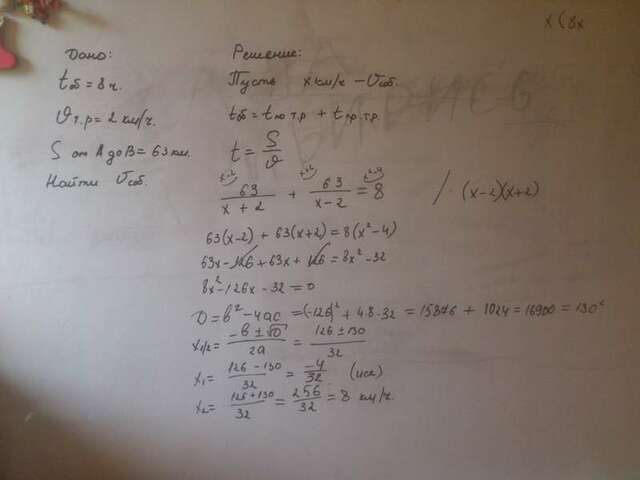 x(8x
Дано:
tоб = 8 ч.
υт.р = 2 км/ч.
S от A до B = 63 км.
Найти υсоб.
Решение:
Пусть x км/ч – υсоб.
tоб = tпо т.р + tпр.т.р.
t = S/υ
63/(x+2) + 63/(x-2) = 8 /· (x-2)(x+2)
63(x-2) + 63(x+2) = 8(x²-4)
63x - 126 + 63x + 126 = 8x² - 32
8x² - 126x - 32 = 0
D = b² - 4ac = (-126)² + 4·8·32 = 15876 + 1024 = 16900 = 130²
x1/2 = (-b ± √D)/2a = (126 ± 130)/32
x1 = (126 - 130)/32 = -4/32 (иск)
x2 = (126 + 130)/32 = 256/32 = 8 км/ч.